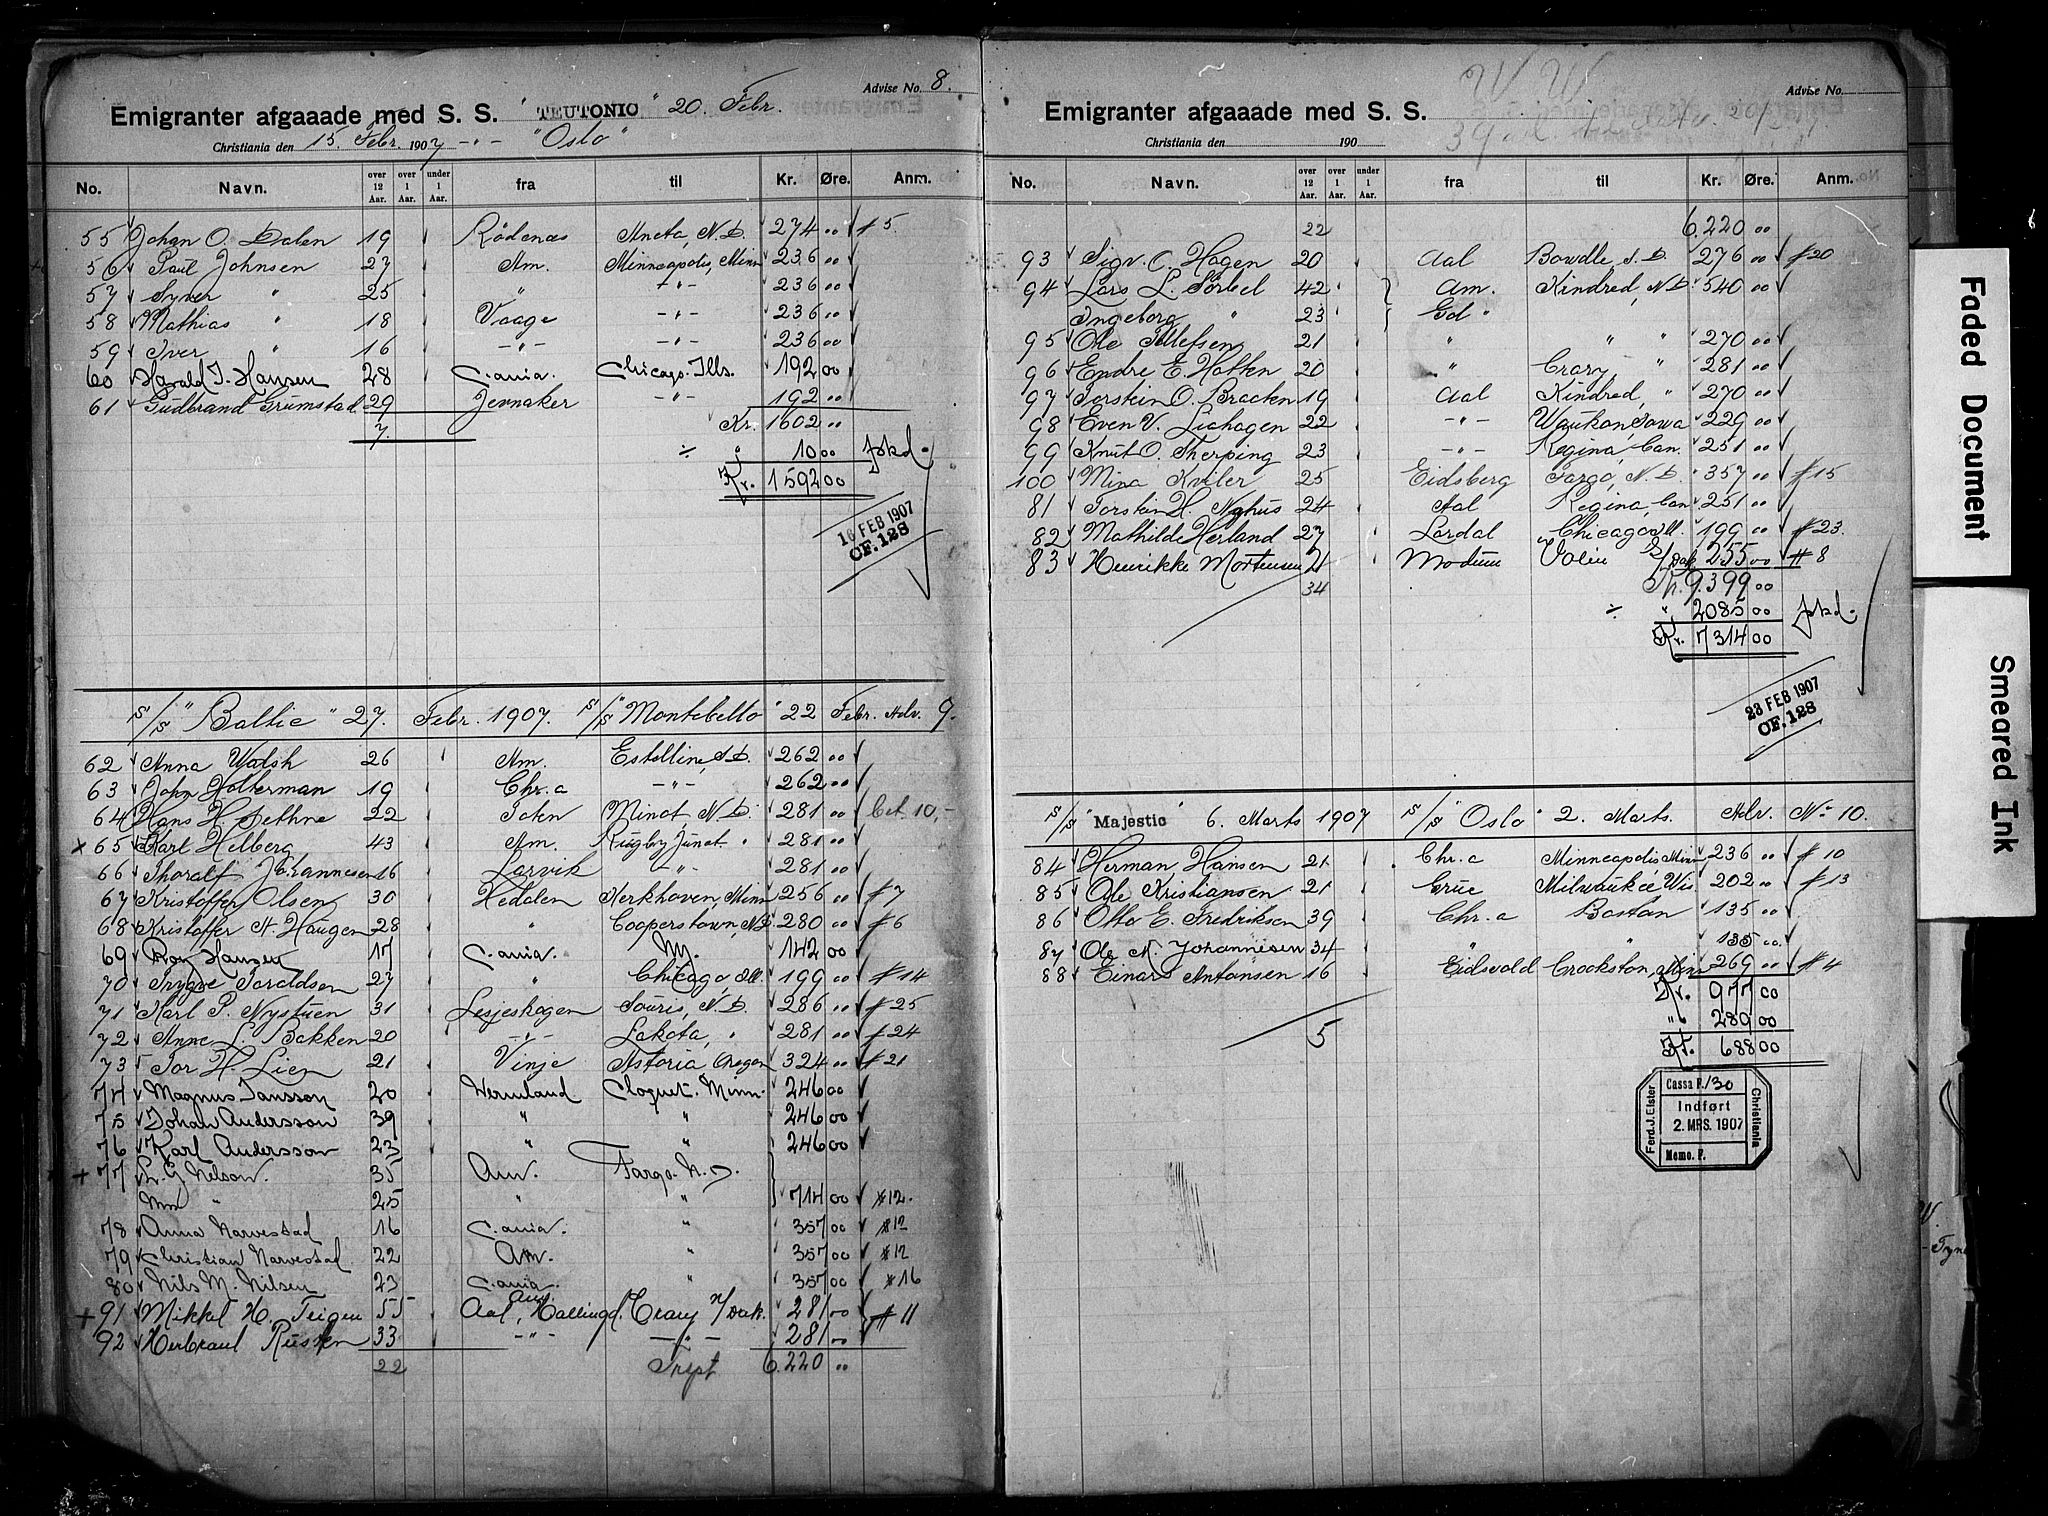 Advise No. 8.
Emigranter afgaaade med S. S. "TEUTONIC" 20. Febr.
Christiania den 15. Febr. 1907 -"- "Oslo"
No. Navn. over 12 Aar. over 1 Aar. under 1 Aar. fra til Kr. Øre. Anm.
55 Johan O. Dalen 19 Rödenæs Aneta, N.D. 274 00 #5.
56 Paul Johnsen 27 Am. Minneapolis, Minn 236 00
57 Syver " 25 " -"- 236 00
58 Mathias " 18 Vaage -"- 236 00
59 Iver " 16 -"- -"- 236 00
60 Harald T. Hansen 28 C.ania. Chicago. Ills. 192 00
61 Gudbrand Grumstad 29 Jevnaker -"- 192 00
7. Kr. 1602 "
÷ " 10 00
Kr. 1592 00
16 FEB 1907
OF. 128
S/S "Baltic" 27. Febr. 1907. S/S "Montebello" 22 Febr. Adv. 9.
62 Anna Walsh 26 Am. Estelline, S.D. 262 00
63 John Holterman 19 Chr.a -"- 262 00
64 Hans H. Sethne 22 Toten Minot N.D. 281 00 Cct. 10,-
x 65 Karl Helberg 43 Am. Rugby Junct " 281 00
66 Thoralf Johannesen 16 Larvik -"- 281 00
67 Kristoffer Olsen 30 Hedalen Kerkhoven, Minn 256 00 #7
68 Kristoffer A. Haugen 28 " Cooperstown, N.D. 280 00 #6
69 Roy Hansen 17 C.ania. 142 00
70 Trygve Toraldsen 27 " Chicago, Ill. 199 00 #14
71 Karl P. Nystuen 31 Lesjeskogen Souris, N.D. 286 00 #25
72 Anne L. Bakken 20 -"- Lakota, " 281 00 #24
73 Tor H. Lien 21 Vinje Astoria Oregon 324 00 #21
74 Magnus Jansson 20 Wermland Cloquet. Minn. 246 00
75 Johan Andersson 39 " " 246 00
76 Karl Andersson 23 " " 246 00
+ 77 L. G. Nelson. 35 Am. Fargo. N.D.
Mrs " 25 " " 714 00 #12.
78 Anna Narvestad 16 C.ania. " 357 00 #12
79 Christian Narvestad 22 Am. " 357 00 #12
80 Nils M. Nilsen 23 C.ania. " 357 00 #16
+ 91 Mikkel H. Teigen 55 Aal, Hallingd. Crary N/Dak. 281 00 #11
92 Herbrand 33 -"- -"- 281 00
22 Trspt 6.220 00
W W
Advise No.
Emigranter afgaaade med S. S.
Christiania den 190
No. Navn. over 12 Aar. over 1 Aar. under 1 Aar. fra til Kr. Øre. Anm.
22 6.220 00
93 Sigv. O. Hagen 20 Aal Bowdle, S.D. 276 00 #20
94 Lars L. Sörbel 42 Am. Kindred, N.D. 540 00
Ingeborg " 23 Gol "
95 Ole Tollefsen 21 " " " 270 00
96 Endre E. Hatten 20 " Crary, " 281 00
97 Torstein O. Bracken 19 Aal Kindred, " 270 00
98 Even V. Liahagen 22 -"- Waukon, Iowa 229 00
99 Knut O. Therping 23 -"- Regina, Can. 251 00
100 Mina Kviler 25 Eidsberg Fargo, N.D. 357 00 #15
81 Torstein H. Nghus 24 Aal Regina, Can 251 00
82 Mathilde Herland 27 Lardal Chicago Ill. 199 00 #23.
83 Henrikke Mortensen 21 Modum Volin S/Dak 255 00 #8
34 Kr. 9.399 00
÷ " 2085 00
Kr. 7314 00
23 FEB 1907
OF. 128
S/S "Majestic" 6. Marts 1907 S/S "Oslo" 2. Marts. Adv. No 10.
84 Herman Hansen 21 Chr.a Minneapolis Minn 236 00 #10
85 Ole Kristiansen 21 Grue Milwaukee Wis. 202 00 #13
86 Otto E. Fredriksen 39 Chr.a Boston 135 00
87 Ole N. Johannesen 34 " " 135 00
88 Einar Antonsen 16 Eidsvold Crookston, Minn 269 00 #4
Kr. 977 00
5 " 289 00
Kr. 688 00
Ferd. J. Elster
Cassa F. 130
Indført
2. MRS. 1907
Memo. F.
Christiania
Faded Document
Smeared Ink